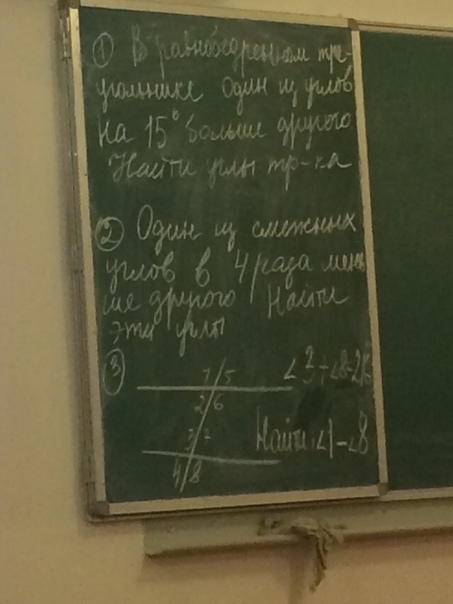 ① В равнобедренном тре-
угольнике один из углов
на 15° больше другого
Найти углы тр-ка
② Один из смежных
углов в 4 раза мень
ше другого Найти
эти углы
③
1/5
2/6
3/7
4/8
Найти ∠1-∠8